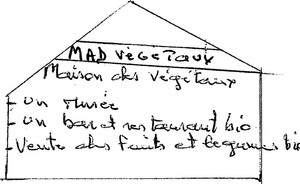 MAD VégéTaux
Maison des végétaux
- un Musée
- un bar et restaurant bio
- Vente des fruits et legumes bio